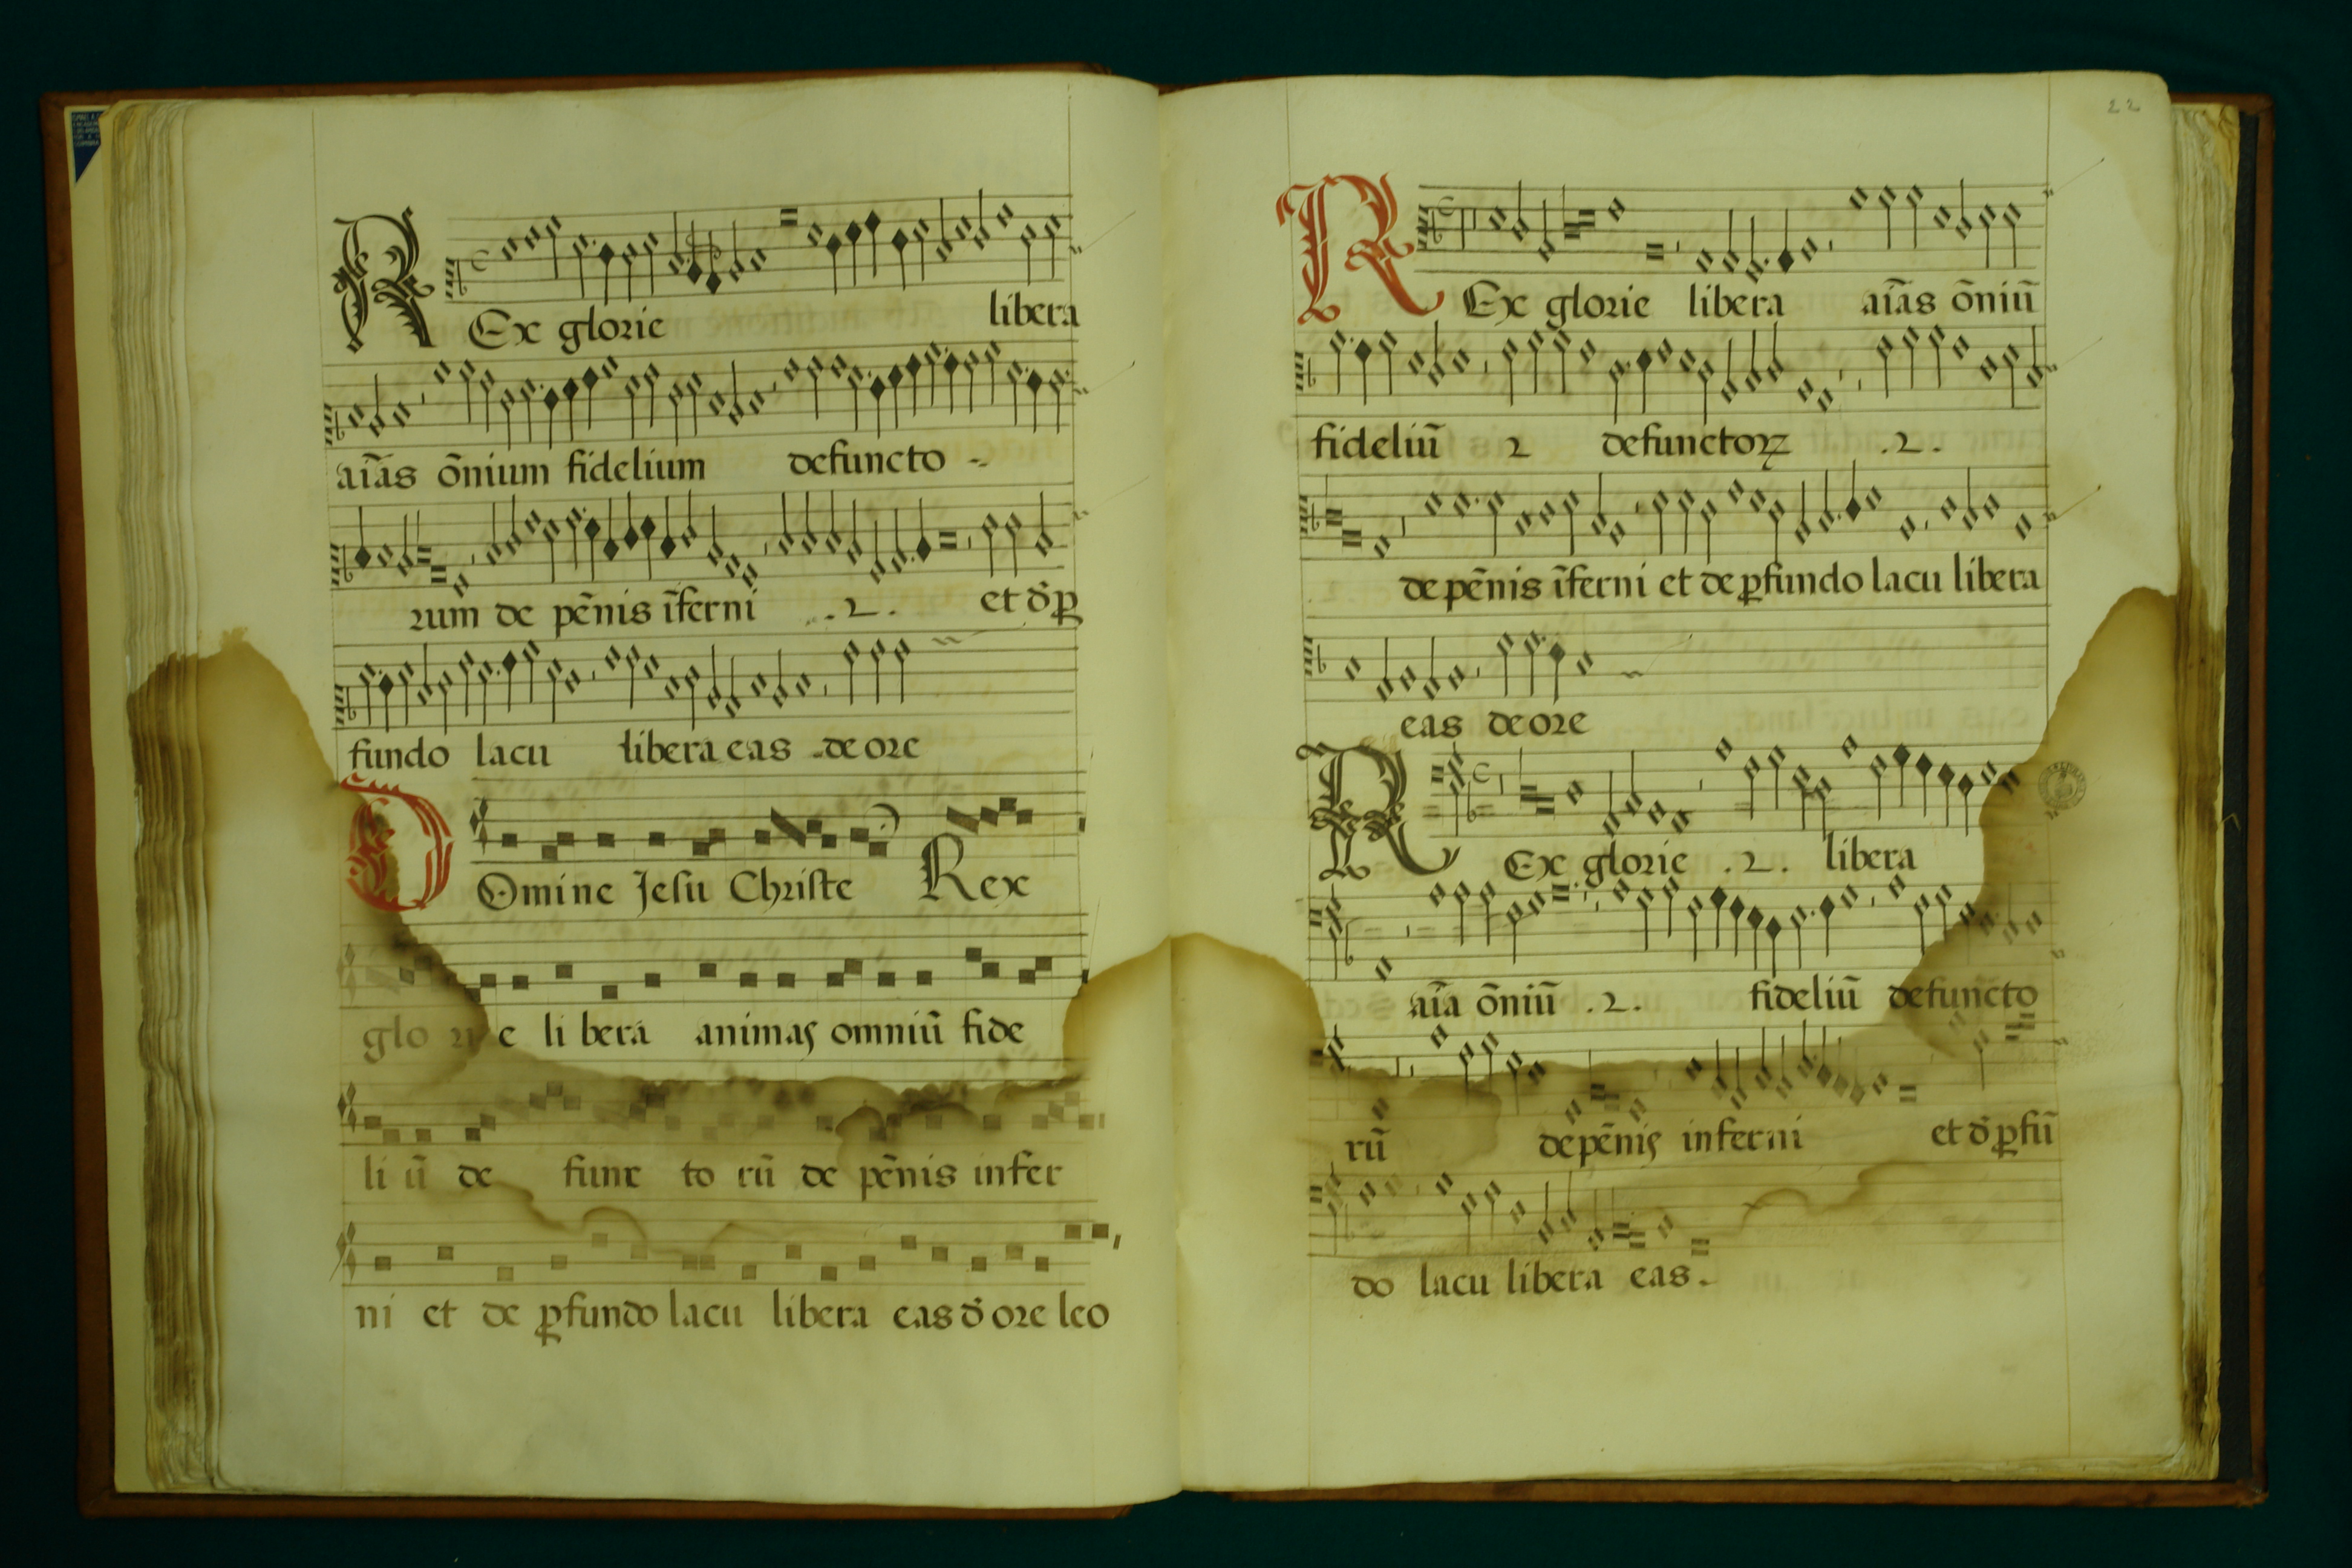 REx glorie libera
aīas ōnium fidelium defuncto
rum de pēnis īferni .2. et ð ꝓ
fundo lacu libera eas de ore
DOmine Jesu Christe Rex
glo ri e li bera animas omniū fide
li ū de func to rū de pēnis infer
ni et de ꝓfundo lacu libera eas ð ore leo
22
REx glorie libera aīas ōniū
fideliū 2 defunctoꝝ .2.
de pēnis īferni et de ꝓfundo lacu libera
eas de ore
REx glorie .2. libera
aīa ōniū .2. fideliū defuncto
rū de pēnis inferni et ð ꝓfū
do lacu libera eas.